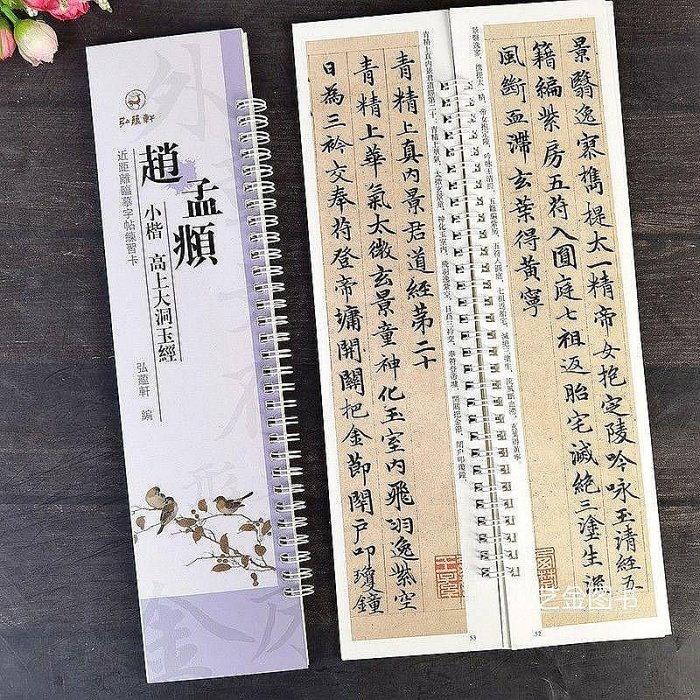 弘蕴軒
趙孟頫
小楷 高上大洞玉經
近距離臨摹字帖練習卡
弘蕴軒 編
景翳逸寮檇提太一精帝女抱定陵吟咏玉清經五
籍編紫房五符入圓庭七祖返胎宅滅絕三塗生流
風斷血滯玄葉得黃寧
青精上真内景君道經第二十
青精上華氣太微玄景童神化玉室内飛羽逸紫空
日為三衿交奉符登帝墉開關把金節閉戶叩瓊鐘
53
52
之金图书